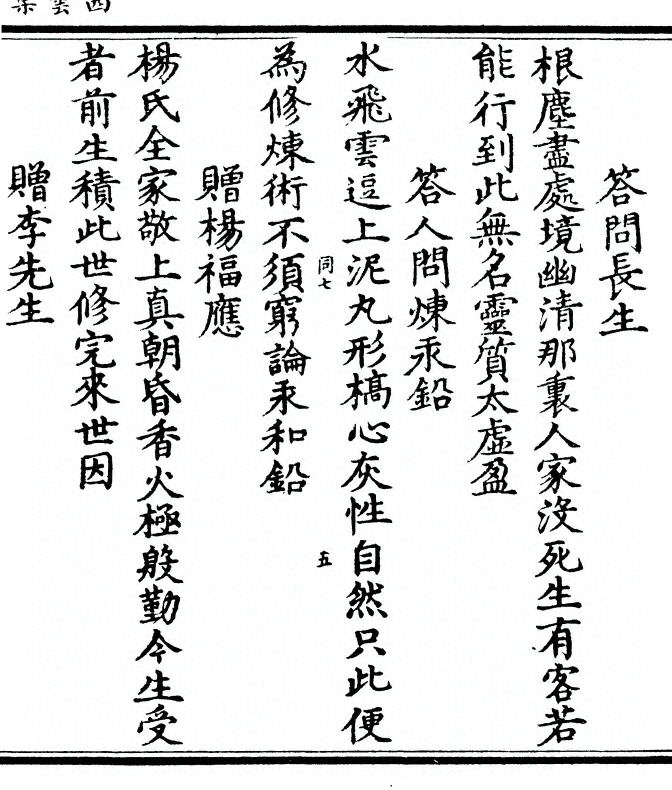 答問長生
根塵盡處境幽清那裏人家沒死生有客若
能行到此無名靈質太虛盈
答人問煉汞鉛
水飛雲逗上泥丸形槁心灰性自然只此便
同七
五
為修煉術不須窮論汞和鉛
贈楊福應
楊氏全家敬上真朝昏香火極殷勤今生受
者前生積此世修完來世因
贈李先生